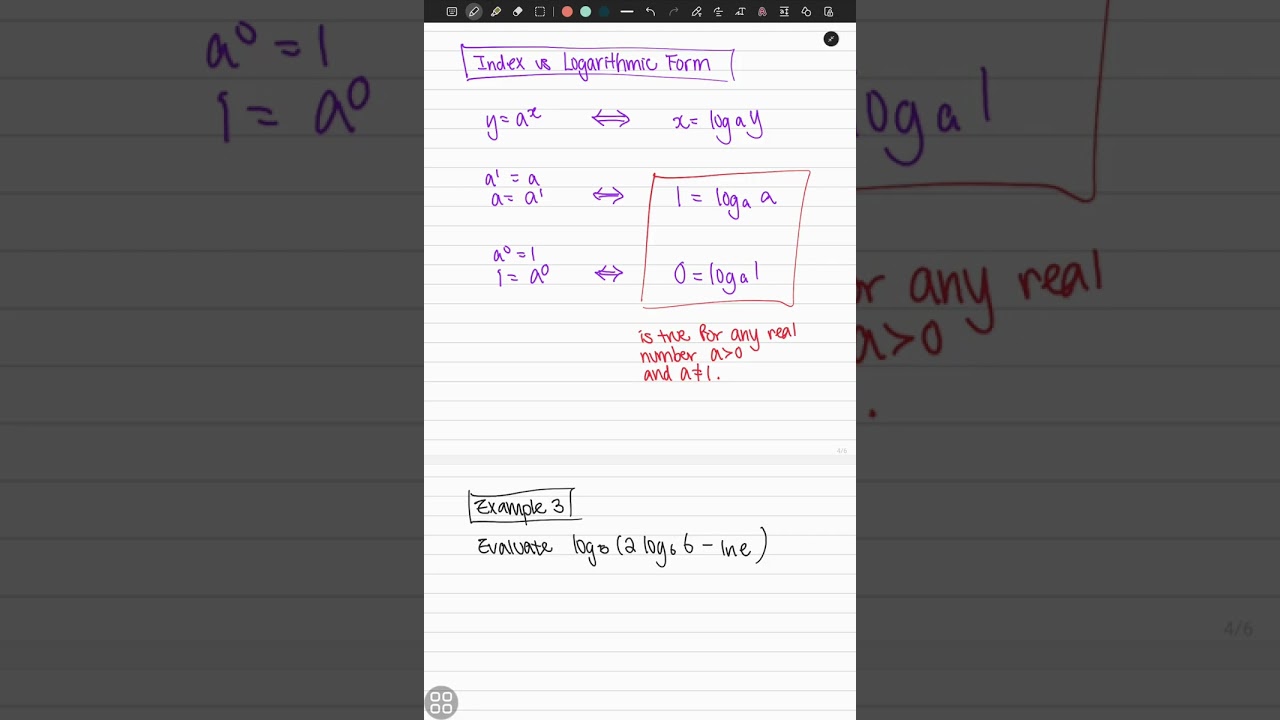 Index vs Logarithmic Form
y = aˣ ⟺ x = logₐ y
a¹ = a
a = a¹ ⟺ 1 = logₐ a
a⁰ = 1
1 = a⁰ ⟺ 0 = logₐ 1
is true for any real
number a>0
and a≠1.
4/6
Example 3
Evaluate (2 log₆ 6 − ln e)
a⁰ = 1
1 = a⁰
log a 1
any real
a>0
4/6